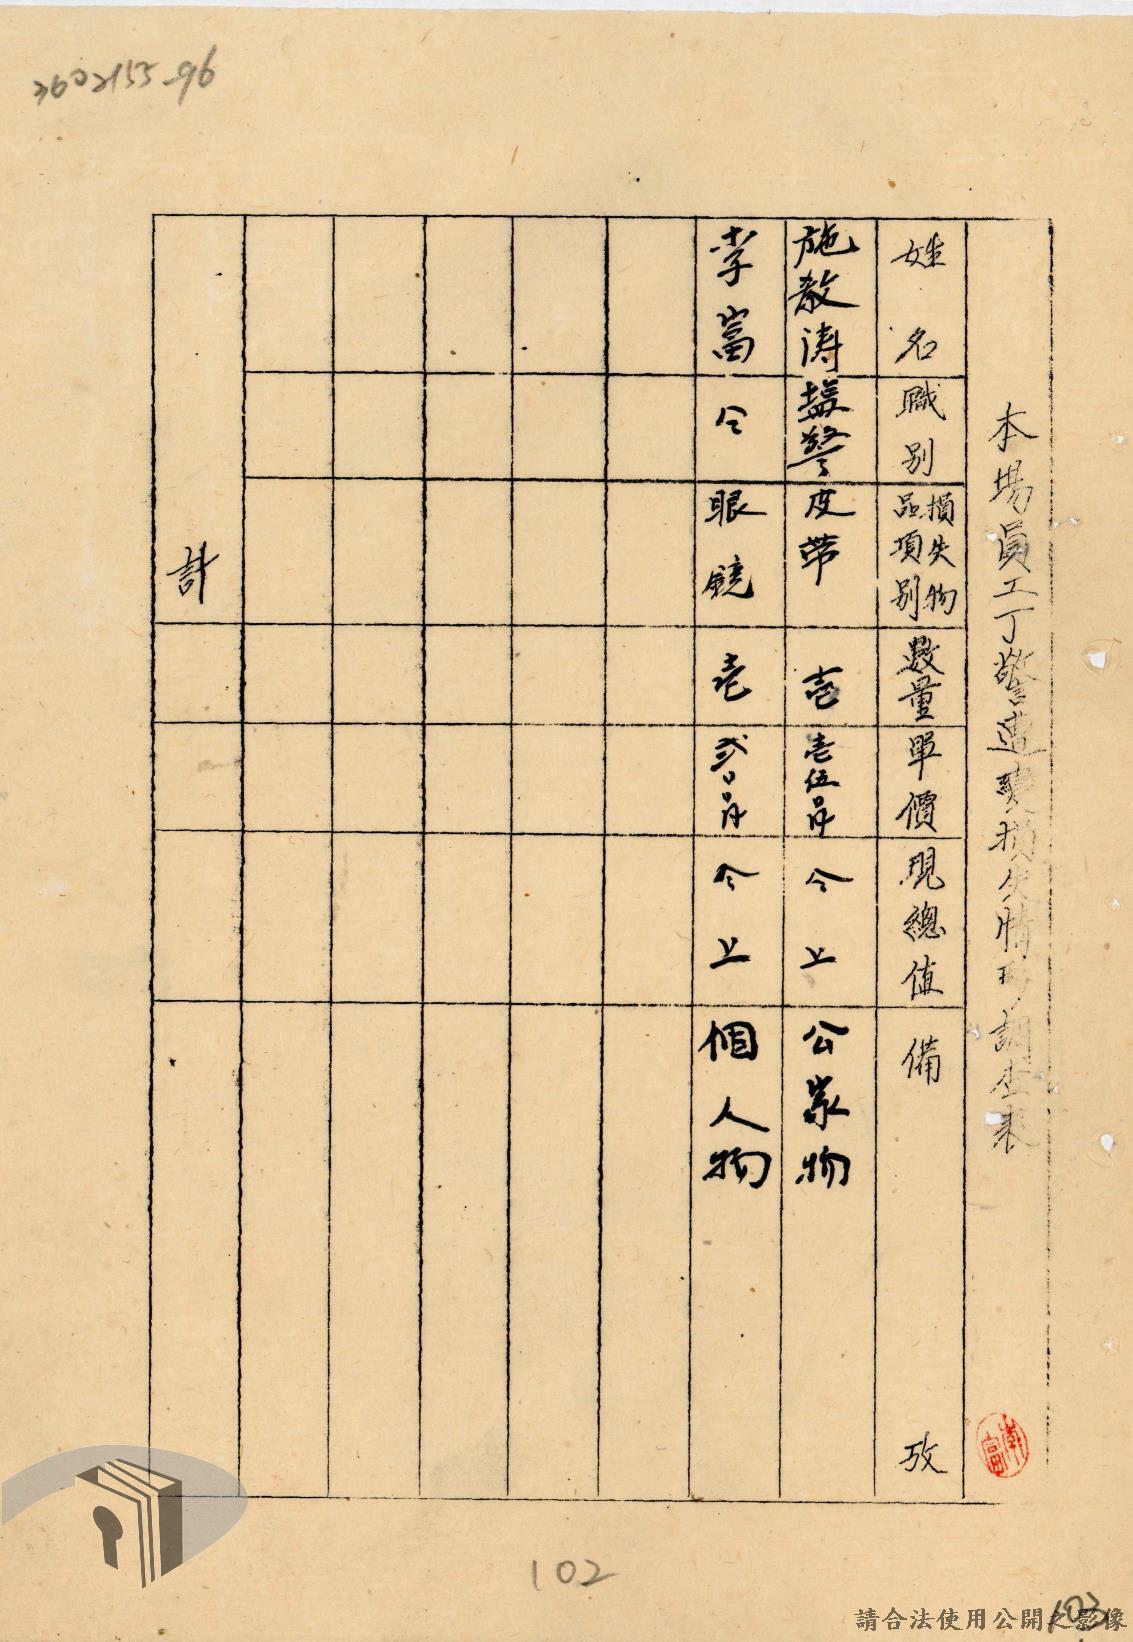 3602155-96
本場員工丁警遭變損失情形調查表
李富
姓名 職別 損失物品項別 數量 單價 現總值 備攷
施教濤 塩警 皮帶 壱 公家物 仝上
李富 仝 眼鏡 壱 仝上 個人物
計
102
103
請合法使用公開之影像